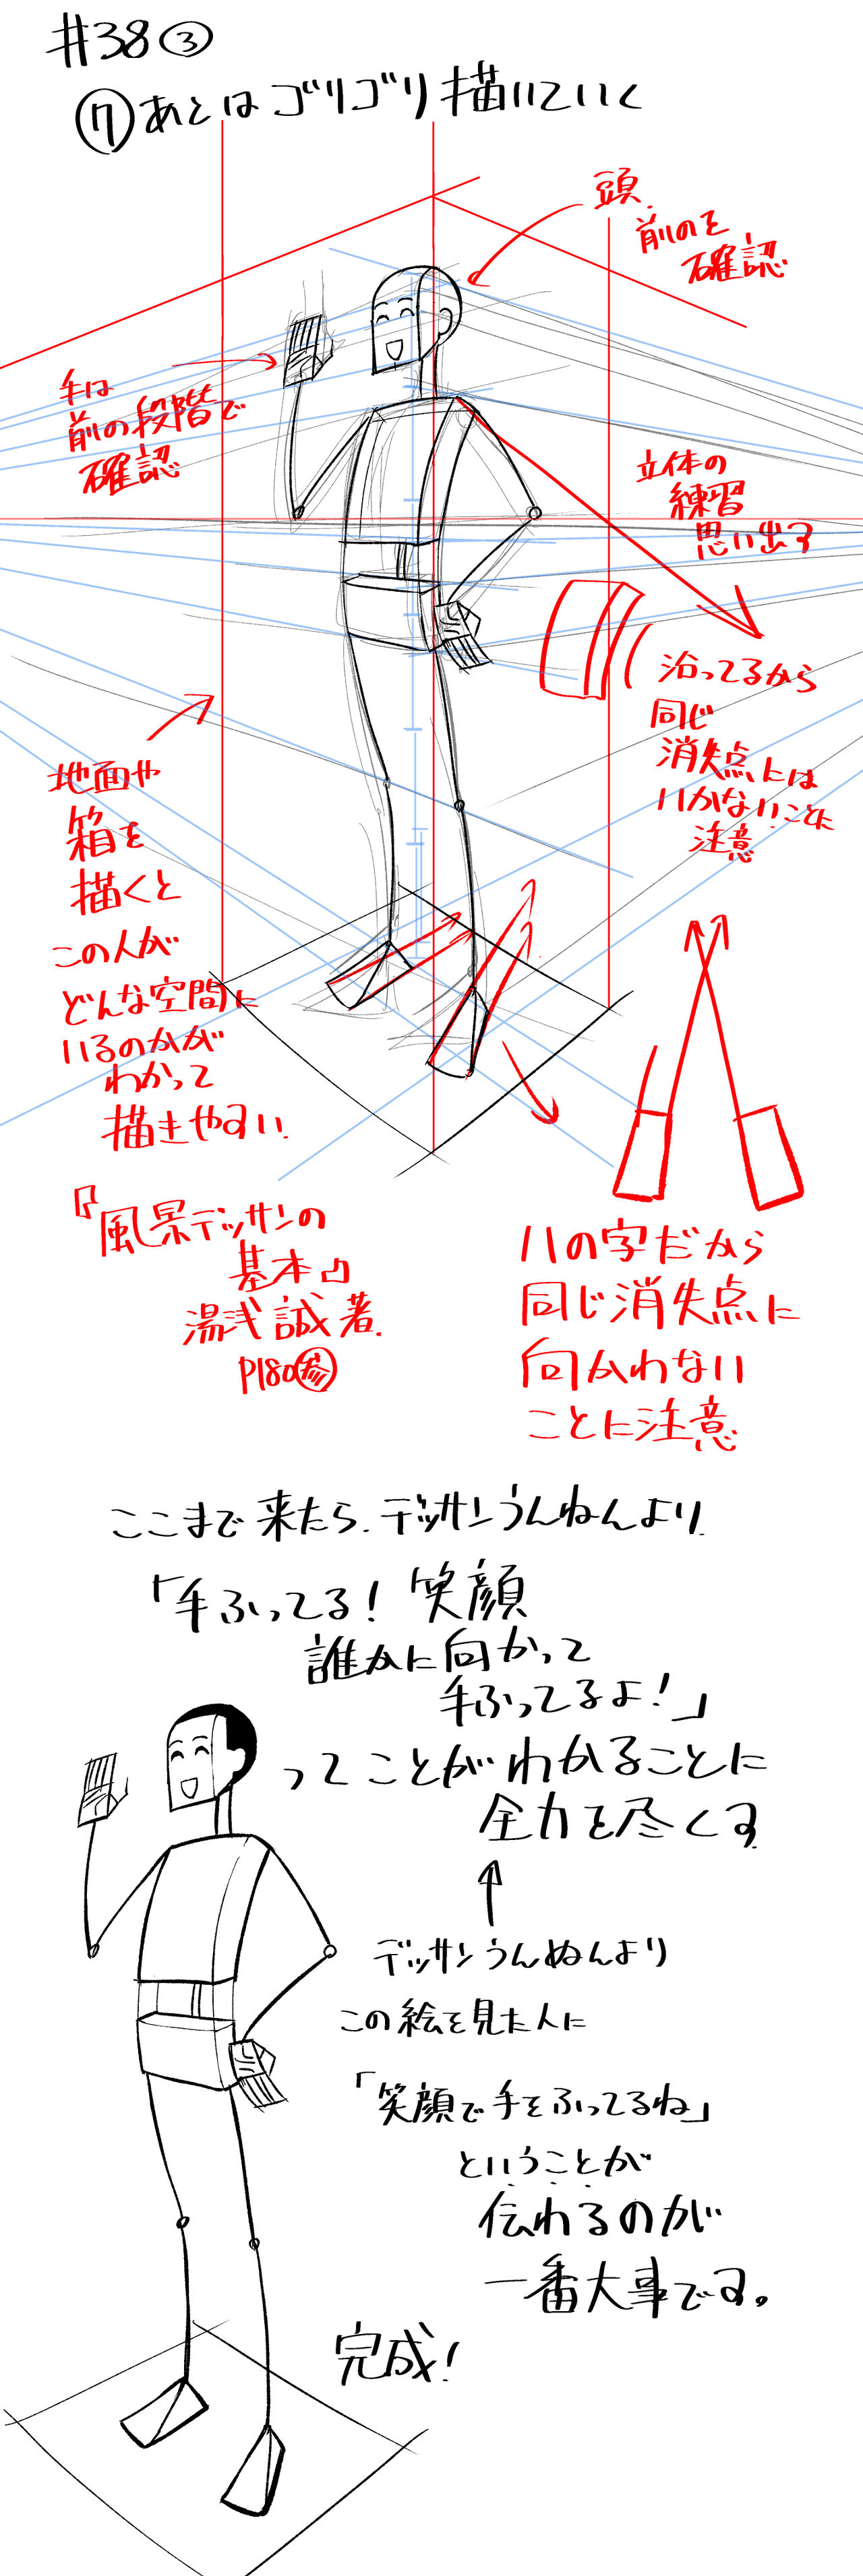 #38③
⑦あとはゴリゴリ描いていく
頭、
前のを
確認
手は
前の段階で
確認
立体の
練習
思い出す
沿ってるから
同じ
消失点には
いかないことに
注意
地面や
箱を
描くと
この人が
どんな空間に
いるのかが
わかって
描きやすい
『風景デッサンの
基本』
湯浅誠著
P180㊂
ハの字だから
同じ消失点に
向かわない
ことに注意
ここまで来たら、デッサンうんねんより
「手ふってる!笑顔
誰かに向かって
手ふってるよ!」
ってことがわかることに
全力を尽くす
デッサンうんぬんより
この絵を見た人に
「笑顔で手をふってるね」
ということが
伝わるのが
一番大事です。
完成!